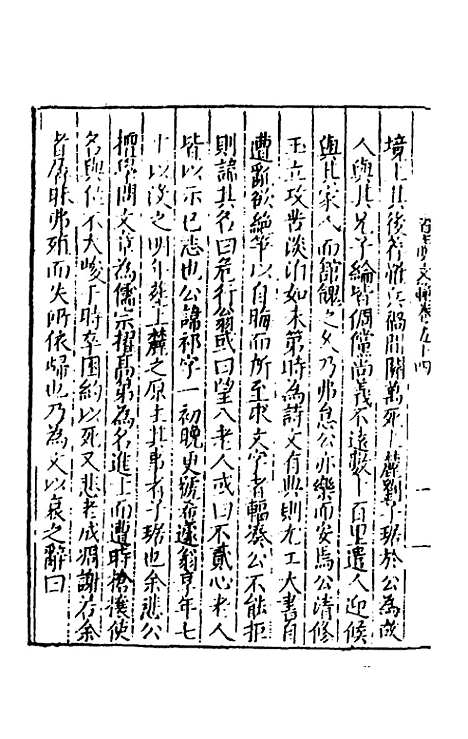 境上其後吞惟兵禍間關萬死上麓劉子琚於公為戚
人與其兄子綸皆倜儻尚義不遠數十百里遣人迎候
與其家人而節館之久乃弗怠公亦樂而安焉公清修
玉立攻苦淡泊如未第時為詩文有典則尤工大書自
遭亂欲絶筆以自晦而所至求文字者輻湊公不能拒
則諱其名曰危行翁或曰望八老人或曰不貳心老人
皆以示已志也公諱祁字一初晚更號希蘧翁享年七
十以沒之明年葬上麓之原主其事者子琚也余悲公
擅學問文章為儒宗擢髙第為名進士而遭時搶攘使
名與位不大峻于時卒困約以死又悲老成凋謝若余
者孱昧弗殄而失所依歸也乃為文以哀之辭曰
皇明文衡卷九十四